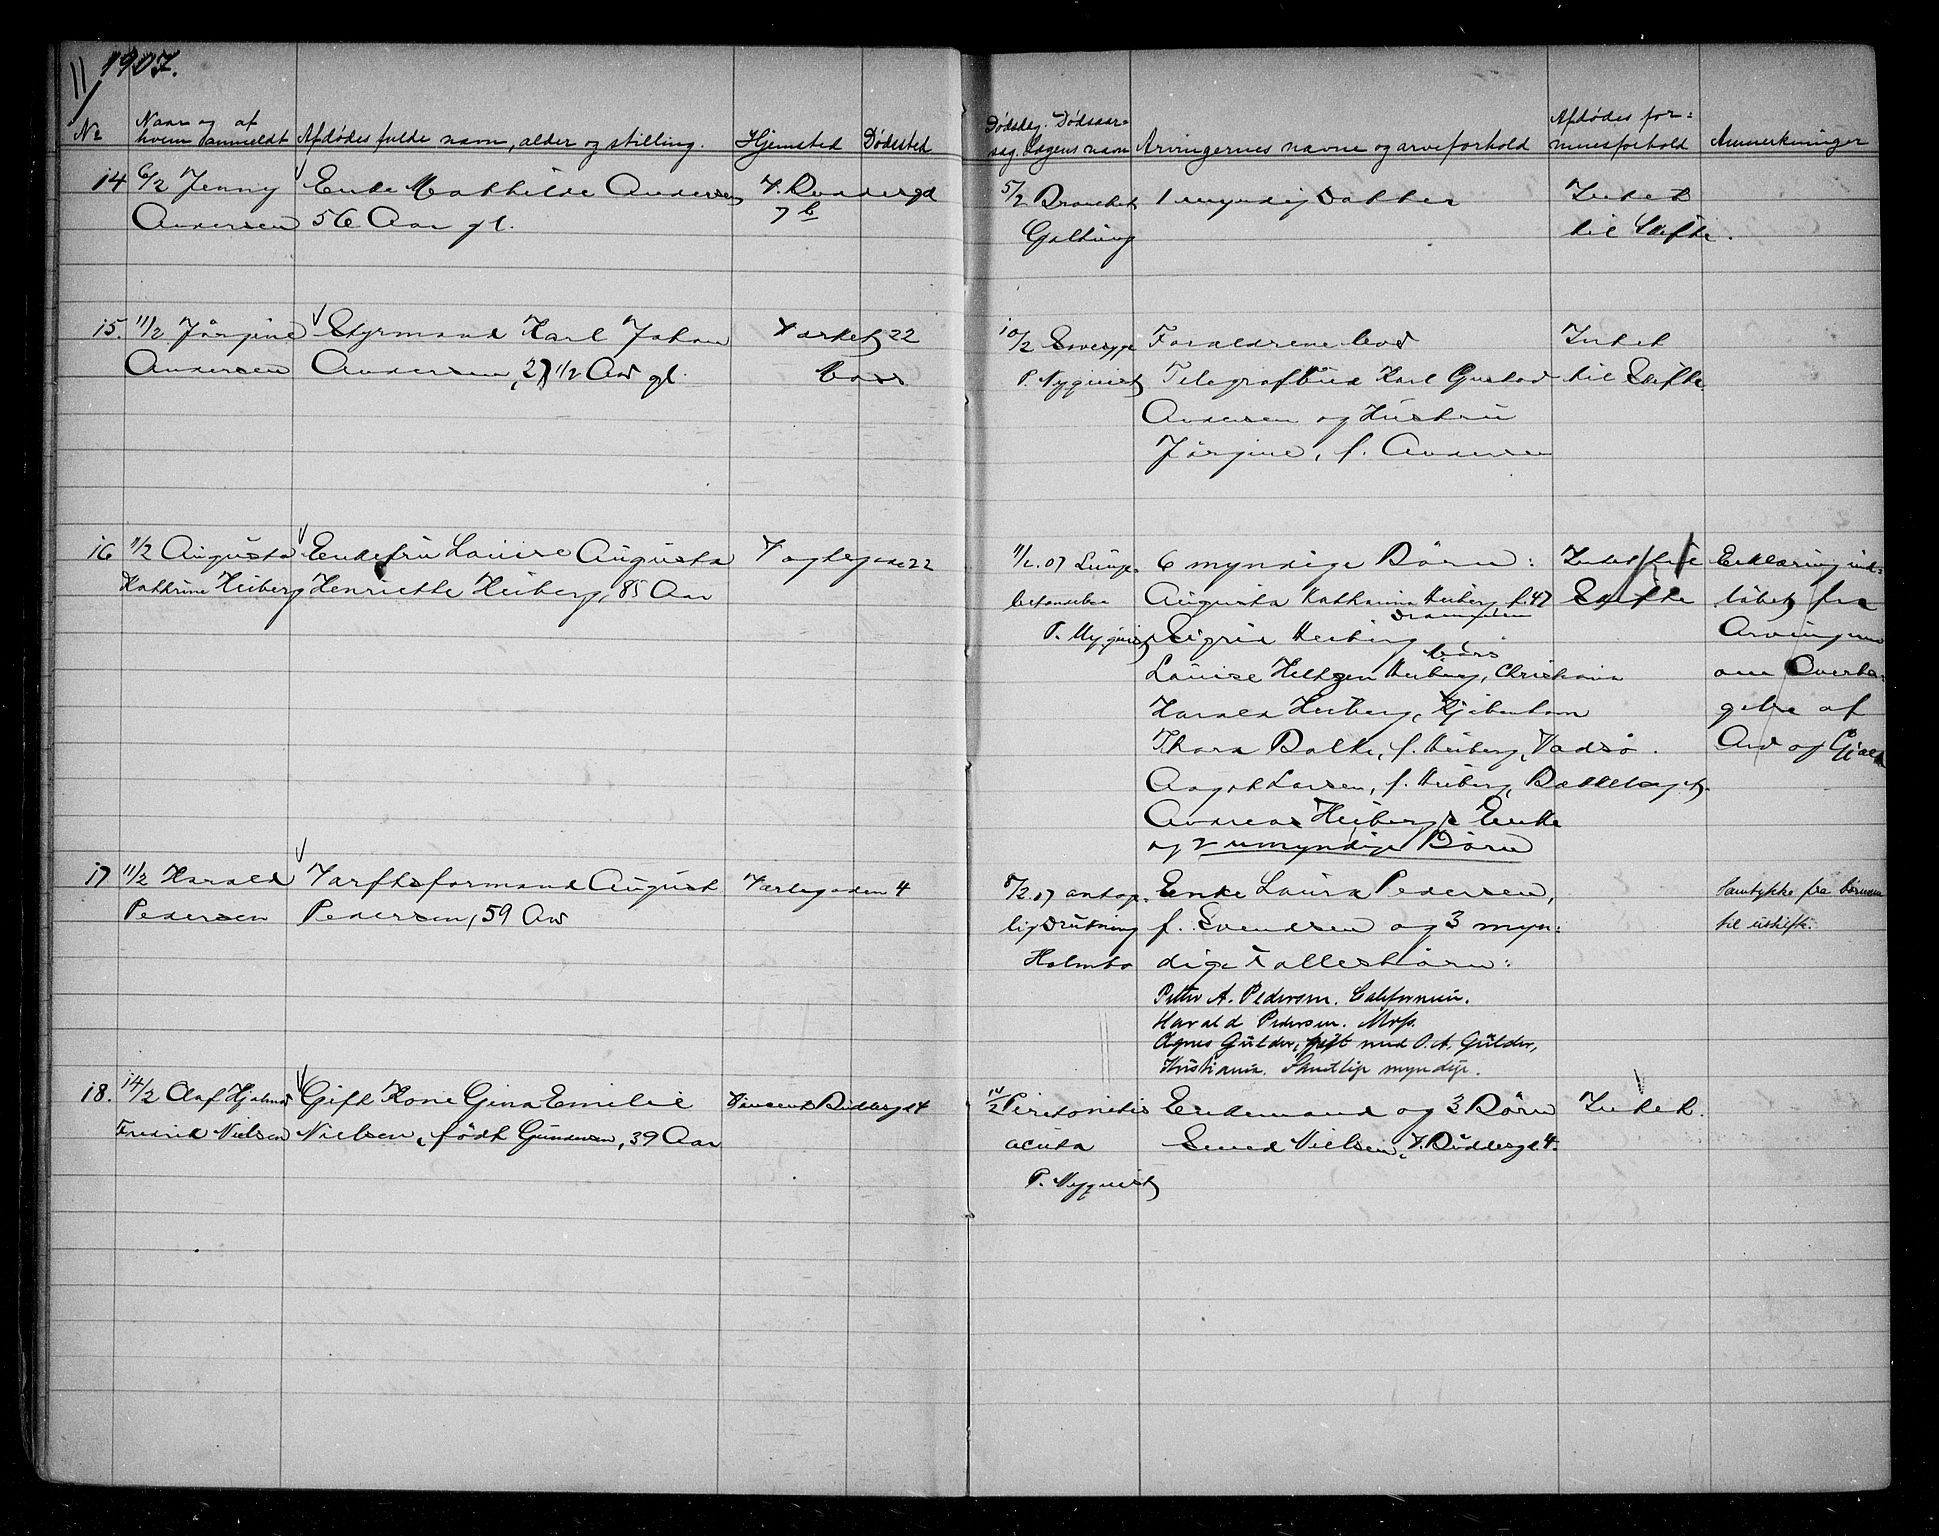 11
1907.
No
Naar og af
hvem anmeldt
Afdødes fulde navn, alder og stilling.
Hjemsted
Dødssted
Dødsdag. Dødsaar=
sag. Lægens navn
Arvingernes navne og arveforhold
Afdødes for=
muesforhold
Anmerkninger
14 6/2 Jenny
Andersen
Enke Mathilde Andersen
56 Aar gl.
7 b
5/2 Bronchit
Galtung
1 myndig Datter
Intet
til Skifte.
15. 11/2 Jørgine
Andersen
Styrmand Karl Johan
Andersen, 27 1/2 Aar gl.
22
10/2
P. Nyquist
Forældrene
Telegrafbud Karl Gustav
Andersen og Hustru
Jørgine, f. Andersen
Intet
til Skifte
16 11/2 Augusta
Kathrine Heiberg
Enkefru Louise Augusta
Henriette Heiberg, 85 Aar
22
11/2. 07 Lunge=
betændelse
P. Nyquist
6 myndige Børn:
Augusta Katharina Heiberg, f. 47
Drammen
Sigrid Heiberg
Louise Heltzen Heiberg, Christiania
Harald Heiberg, Kjøbenhavn
Thora Balke, f. Heiberg, Vadsø.
Aagot Larsen, f. Heiberg, Bækkelaget.
Andreas Heibergs Enke
og 2 umyndige Børn
Intet til
Skifte
Erklæring ind=
løbet fra
Arvingerne
om Overta=
gelse af
Arv og Gjæld
17 11/2 Harald
Pedersen
Værftsformand August
Pedersen, 59 Aar
4
8/2.07 antage=
lig Drukning
Holmbo
Enke Laura Pedersen,
f. Svendsen og 3 myn=
dige Fællesbørn:
Peter A. Pedersen. Californien.
Harald Pedersen. Moss.
Agnes Gulder, gift med O. A. Gulder,
Kristiania. Samtlige myndige.
Samtykke fra børnene
til uskifte.
18. 14/2 Olaf Hjalmar
Fredrik Nielsen
Gift Kone Gina Emilie
Nielsen, født Gundersen, 39 Aar
Vincent Buddesgd 4
14/2 Peritonitis
acuta
P. Nyquist
Enkemand og 3 Børn
Nielsen, V. Buddesgd. 4.
Intet.